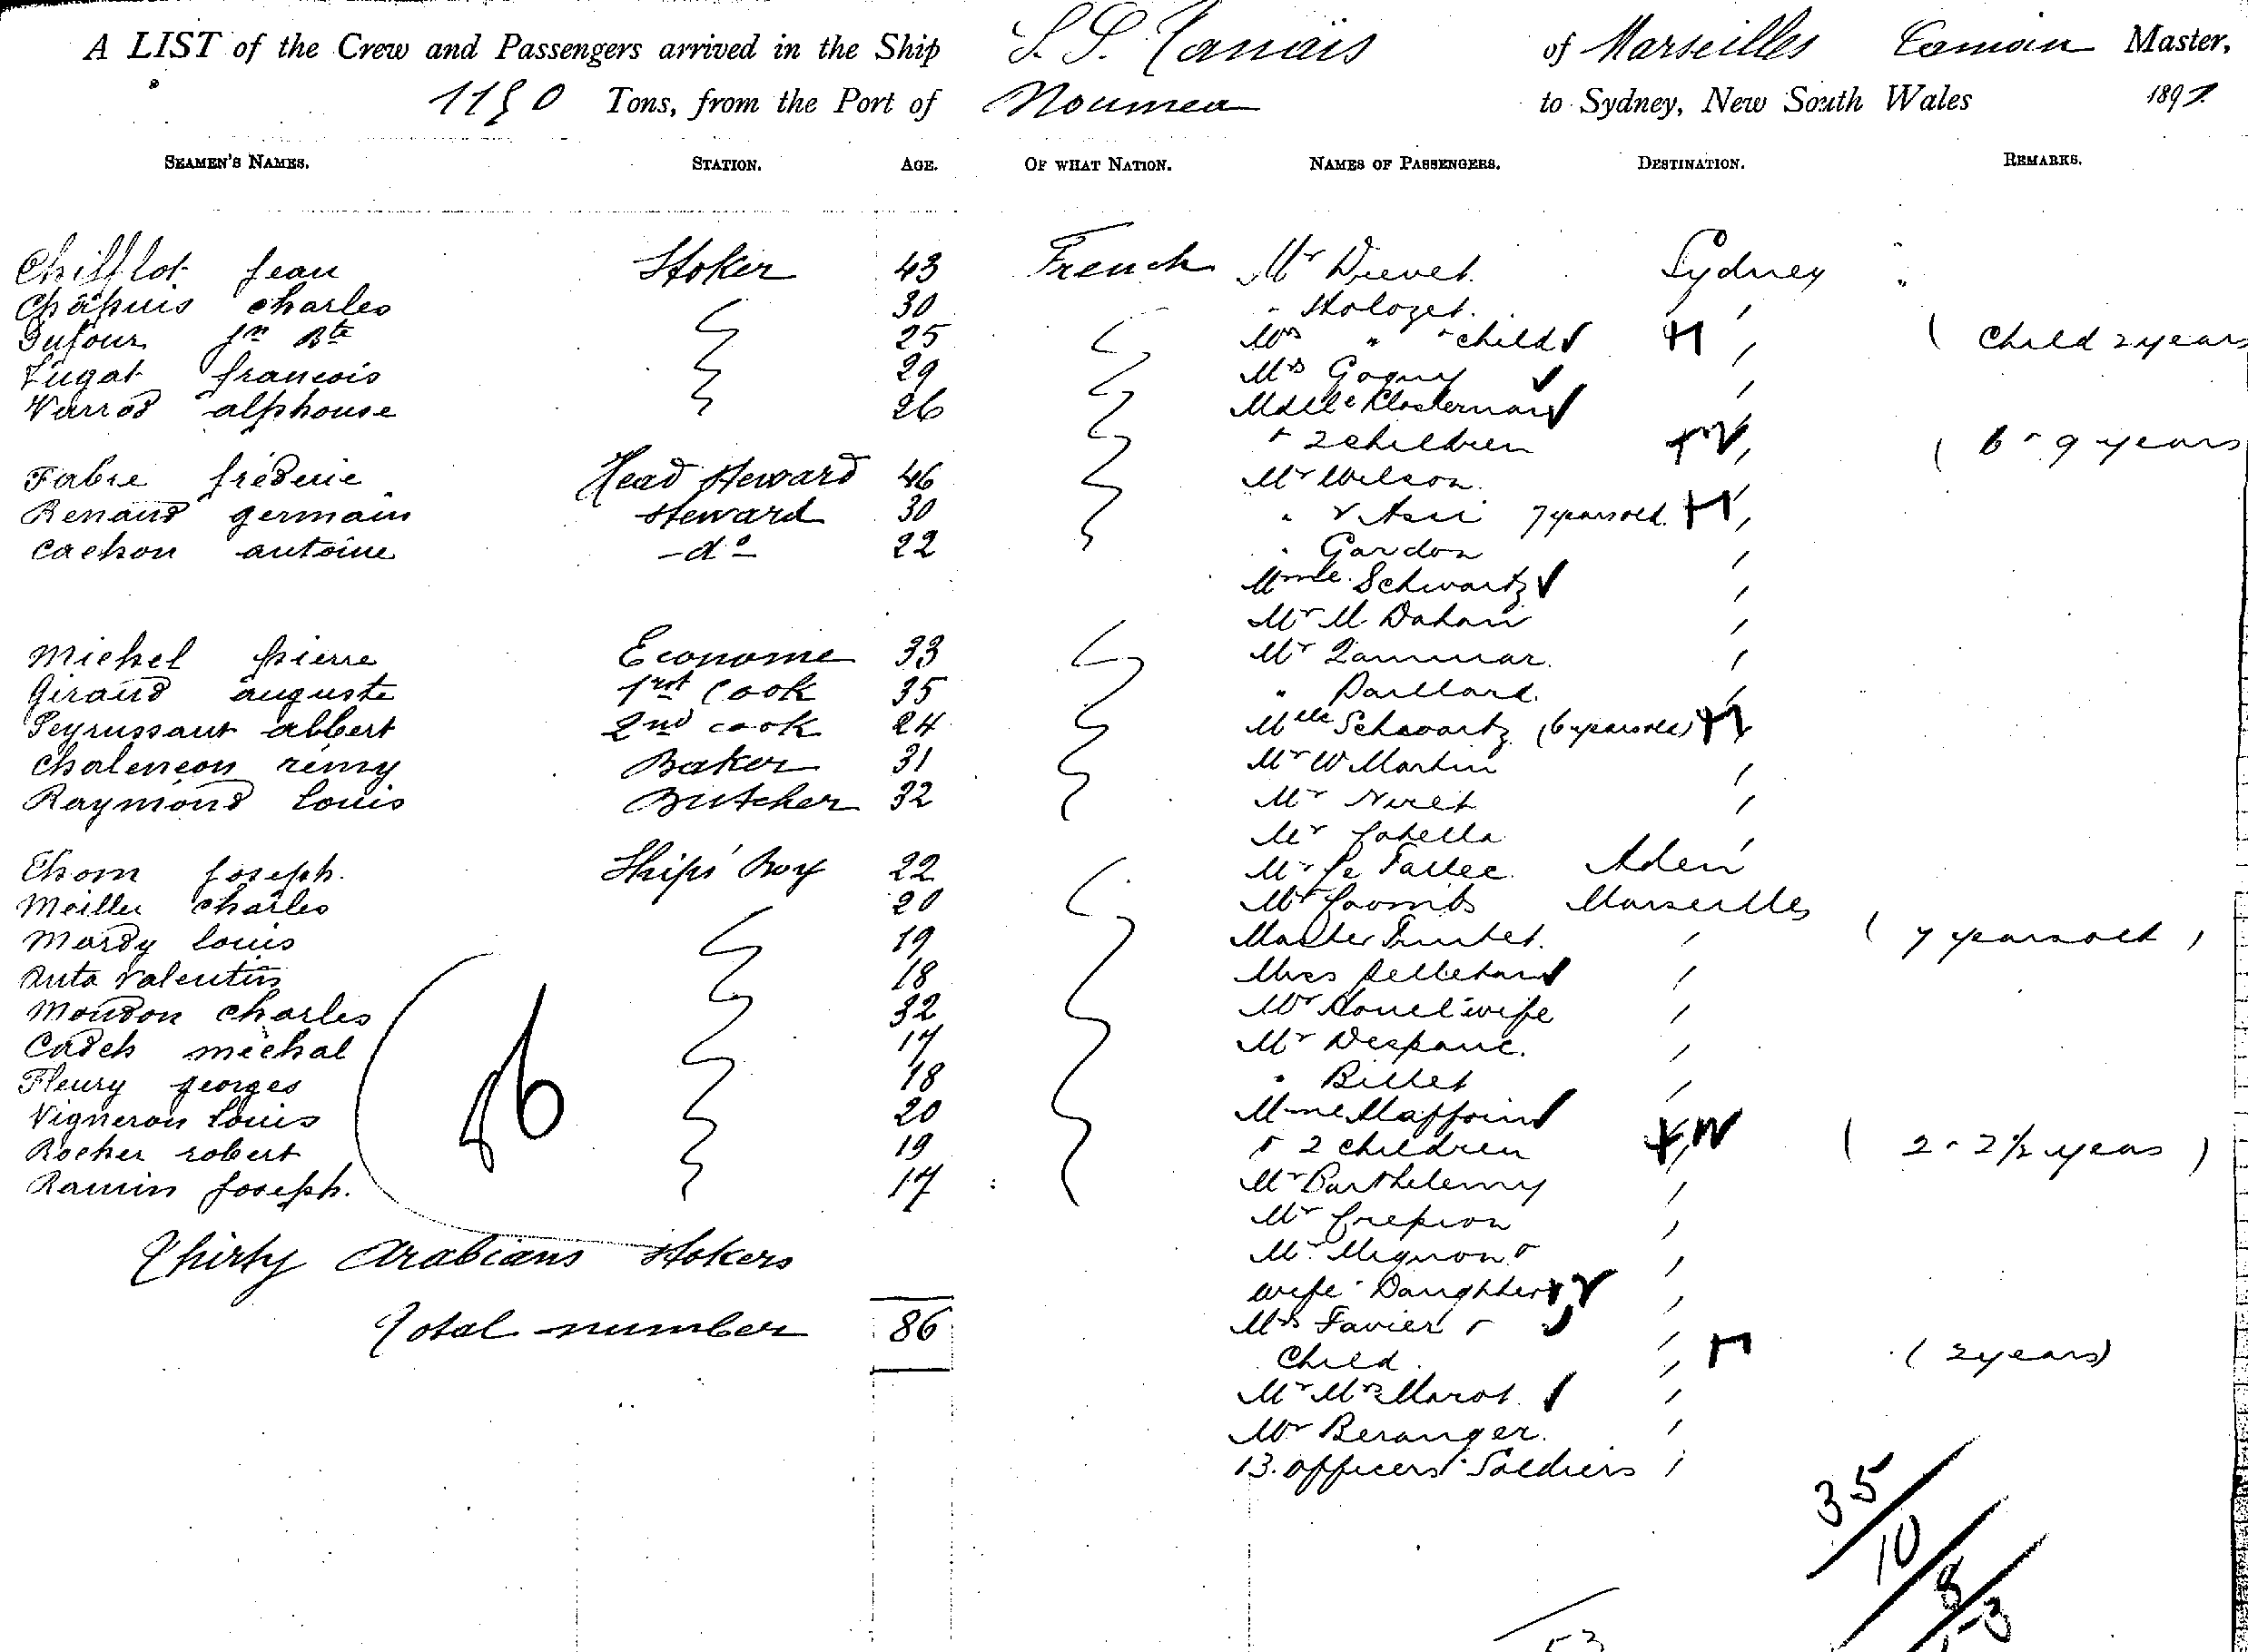 A LIST of the Crew and Passengers arrived in the Ship S.S. Tanaïs of Marseilles Master,
Tons, from the Port of Noumea to Sydney, New South Wales 1897.
SEAMEN'S NAMES. STATION. AGE. OF WHAT NATION. NAMES OF PASSENGERS. DESTINATION. REMARKS.
Chifflot Jean Stoker 43 French Mr Sydney
Chapuis Charles 30
Dufour Jn Bte 25 Mrs " child ( Child 2 years
Lugat francois 29 Mrs Goguy
Varrod alphonse 26 Mdlle Klosterman
2 children ( 6 - 9 years
Fabre fréderic Head Steward 46 Mr Wilson
Renaud germain Steward 30 7 years old.
Cachon antoine - do - 22 Gardon
Mme Schwartz
Mr M Dahan
Michel pierre Econome 33 Mr Zammar.
Giraud auguste 1rst Cook 35 " Paillard.
Peyrussaut albert 2nd cook 24 Mlle Schwartz (6 years old)
Chalencon rémy Baker 31 Mr W Martin
Raymond Louis Butcher 32 Mr
Mr Cabella
Thom Joseph. Ships' Boy 22 Mr Le Fallec. Aden
Meiller Charles 20 Mr Coombs Marseilles
Mardy Louis 19 Master ( 7 years old )
Valentin 18 Miss
Moudon Charles 32 Mr wife
Cadeh mechal 17 Mr
Fleury georges 18 " Billet
Vigneron Louis 20 Mme Maffoin
Rocher robert 19 2 children ( 2 - 2 1/2 years )
Ramin Joseph. 17 Mr Barthelemy
Mr Crepion
Thirty Arabians Stokers Mr Mignon
wife Daughter
Total number 86 Mrs Favier
Child. ( 2 years)
Mr Mrs Marot.
Mr Beranger.
13. officers Soldiers
35
10
8
3
53